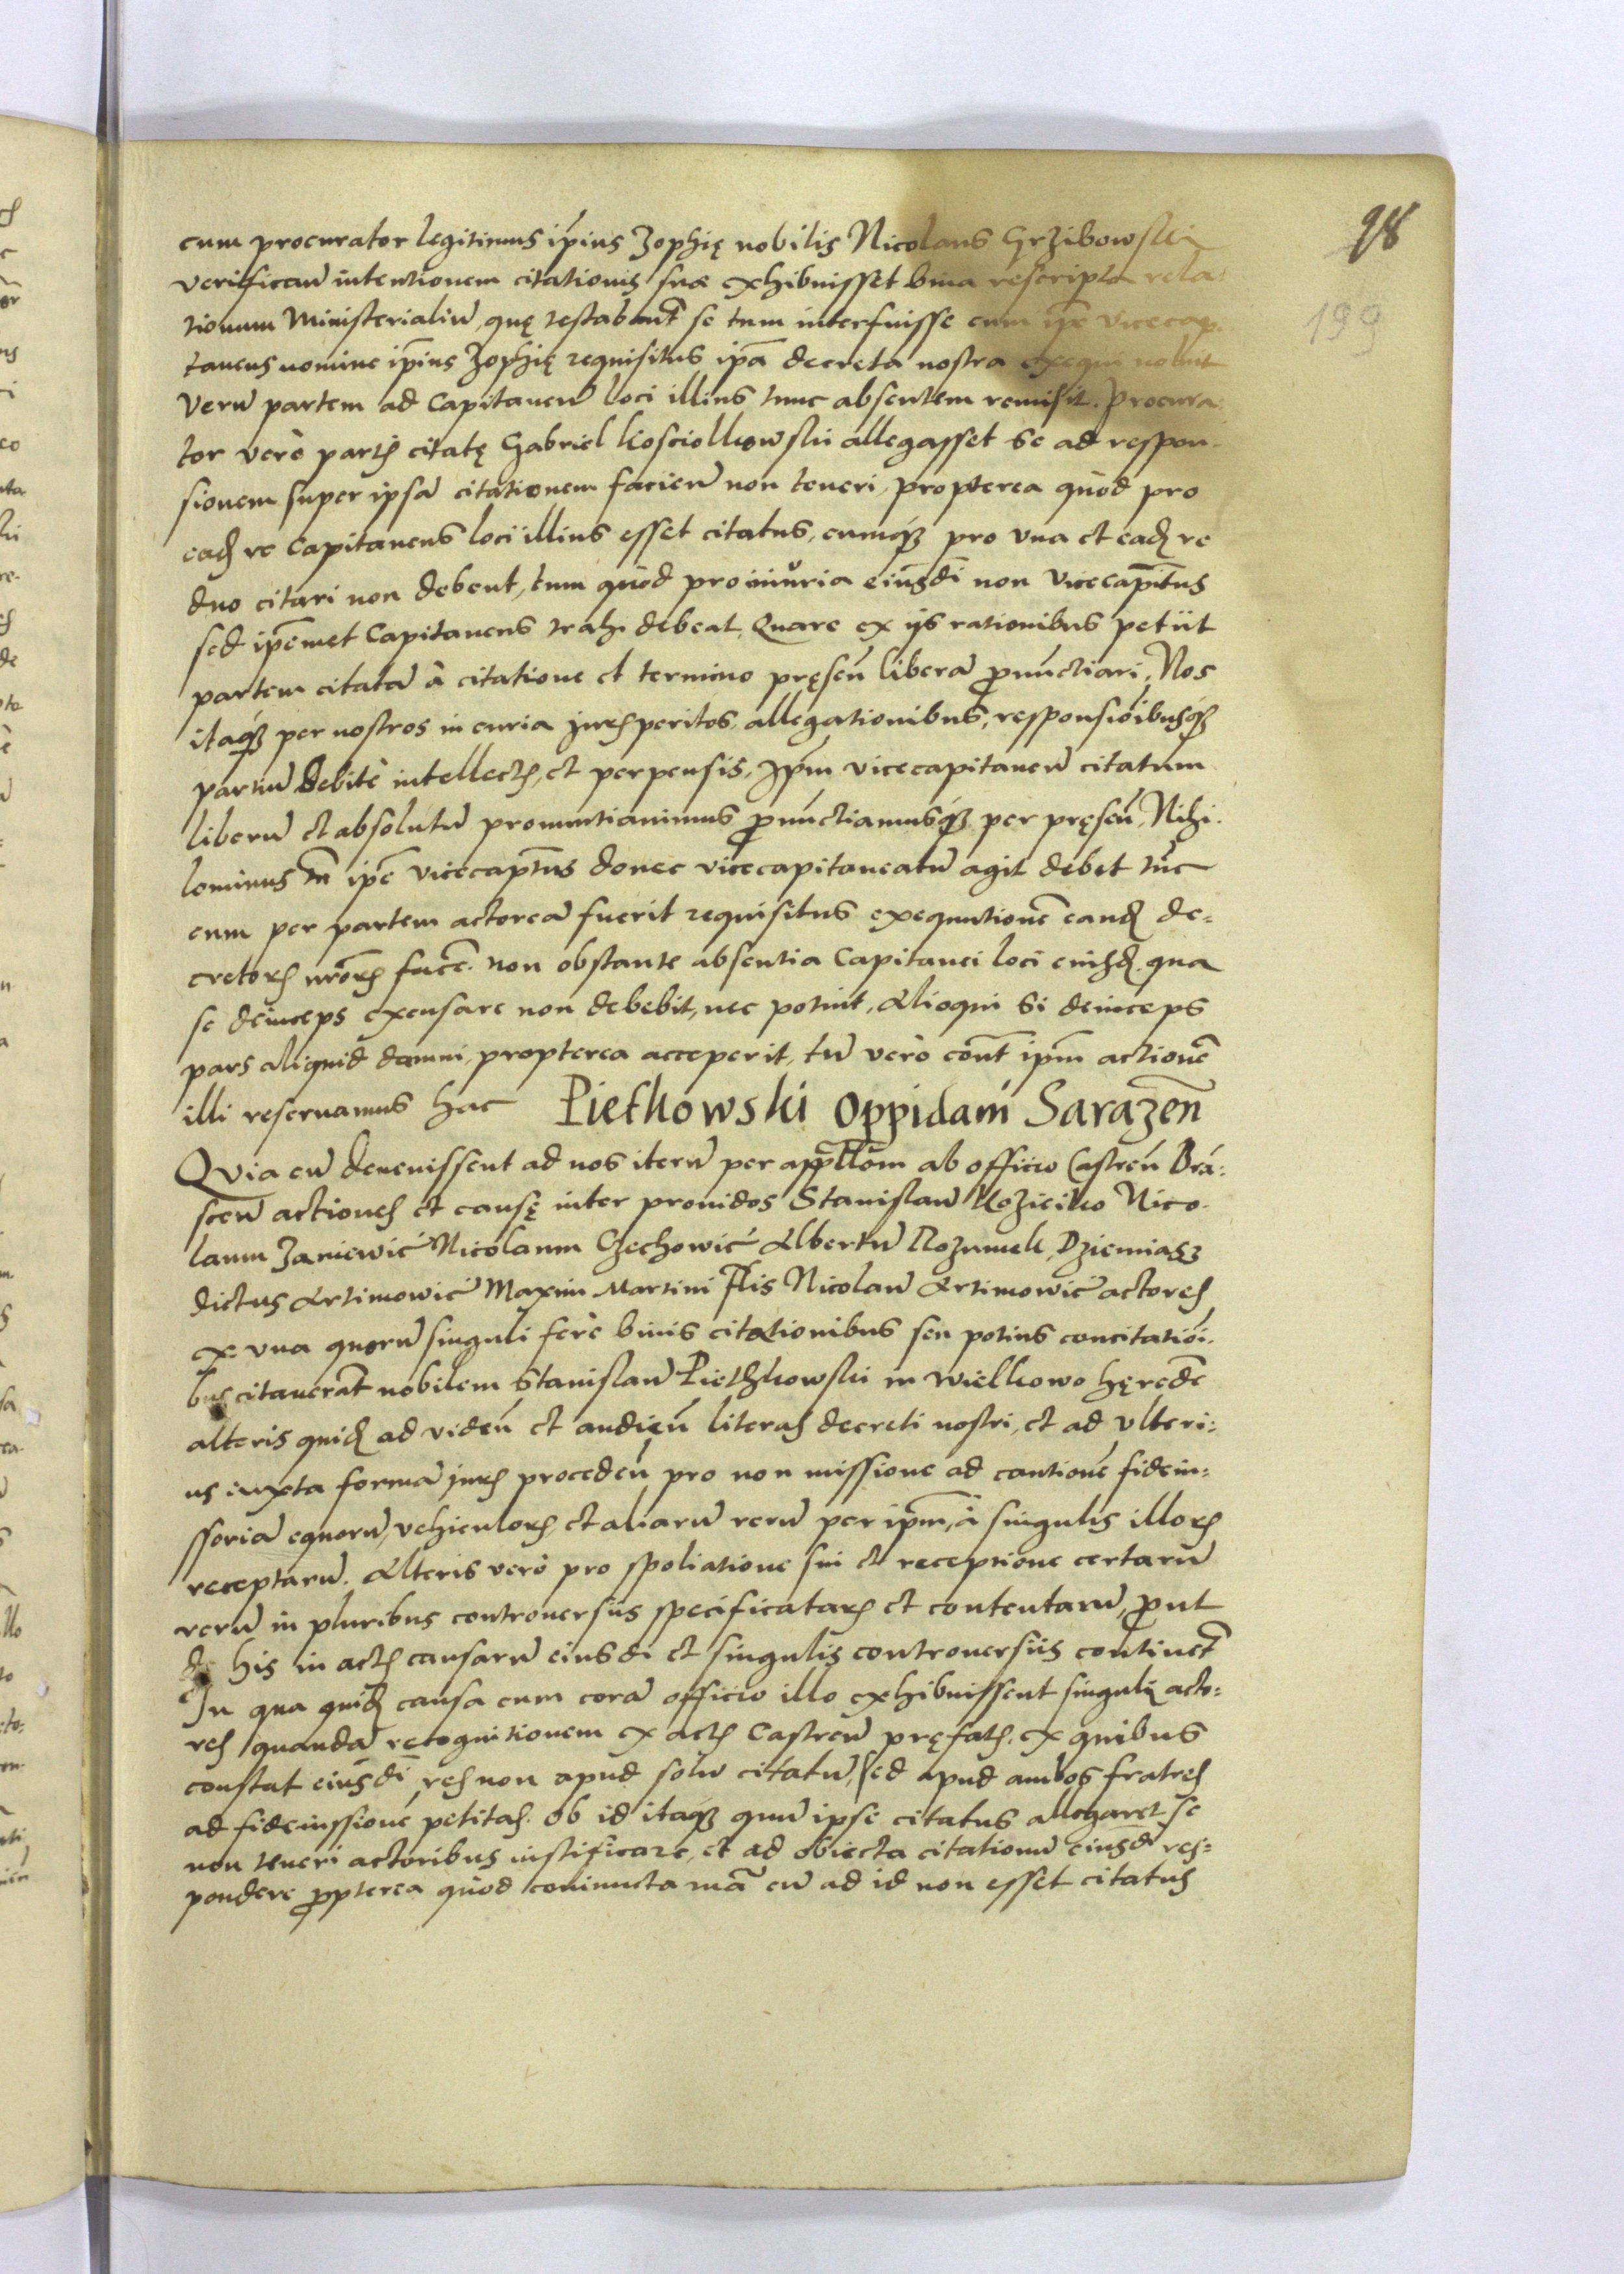 98
199
cum procurator legitimus ip̄ius Zophię nobilis Nicolaus Grzibowski
verificań intentionem citationis suæ exhibuisset bina rescripta rela:
tionum Ministerialiū, quę testabant̄ se tum interfuisse cum ip̄e vicecap
taneus nomine ip̄ius Zophię requisitus ip̄a decreta nostra exequi noluit
Verū partem ad Capitaneū loci illius tunc absentem remisit. Procura:
tor verò partis citatę Gabriel Kosciolkowski allegasset Se ad respon-
sionem super ipsā citationem facień non teneri, propterea quòd pro
eadē re Capitaneus loci illius esset citatus, cumq́ pro una et eadē re
duo citari non debent, tum quòd pro iniuria eiusdī non Vicecapit̄us
sed ip̄emet Capitaneus trahi debeat, Quare ex ijs rationibus petiit
partem citatā à citatione et termino pręseń liberā p̄nūctiari, Nos
itaq́ per nostros in curia juris peritos, allegationibus, responsiōibusq́
partiū debitè intellectis, et perpensis, Ip̄m vicecapitaneū citatum
liberū et absolutū pronuntiauimus p̄nūctiamusq́ per pręseń, Nihi-
lominus tn̄ ip̄e vicecapt̄us donec vicecapitaneatū agit debet tūc
cum per partem actoreā fuerit requisitus exequutionē eandē de-
cretorū nr̄orū facē. non obstante absentia Capitanei loci eiusdē. qua
se deinceps excusare non debebit, nec poterit, Alioqui Si deinceps
pars aliquid damni, propterea acceperit, tū verò cont̄ ip̄m actionē
illi reseruamus hac Pietkowski Oppidani Sarazen̄
Quia cū deuenissent ad nos iterū per app̄llōm ab officio Castreń Brá-
sceń actiones et causę inter prouidos Stanislaū Kozieiko Nico-
laum Zaniewić Nicolaum Czechowić Albertū Rozumek, Dziemiasz
dictus Artimowić Maxim Martini Flis Nicolaū Artimowić actores
ex una quorū singuli ferè binis citationibus seu potius concitatiōi-
bus citauerāt nobilem Stanislaū Pietzkowski in Wielkowo hęredē
alteris quidē ad videń et audień literas decreti nostri, et ad ulteri-
us iuxta formā juris procedeń pro non missione ad cautionē fideiu-
ssoriā equorū, vehiculorū, et aliarū rerū per ip̄m, à singulis illorū
receptarū. Alteris verò pro spoliatione sui et receptione certarū
rerū in pluribus controuersiis specificatarū et contentarū, p̄ut
de his in actis causarū eiusdi et singulis controuersiis continet̄
In qua quidē causa cum corā officio illo exhibuissent singuli acto-
res quandā recognitionem ex actis Castreń pręfatis, ex quibus
constat eiusdī res non apud solū citatū, sed apud ambos fratres
ad fideiussionē petitas. Ob id itaq́ quū ipse citatus allegaret se
non teneri actoribus iustificare, et ad obiecta citationū eiusdi res-
pondere p̄pterea quòd coniuncta mā cū ad id non esset citatus